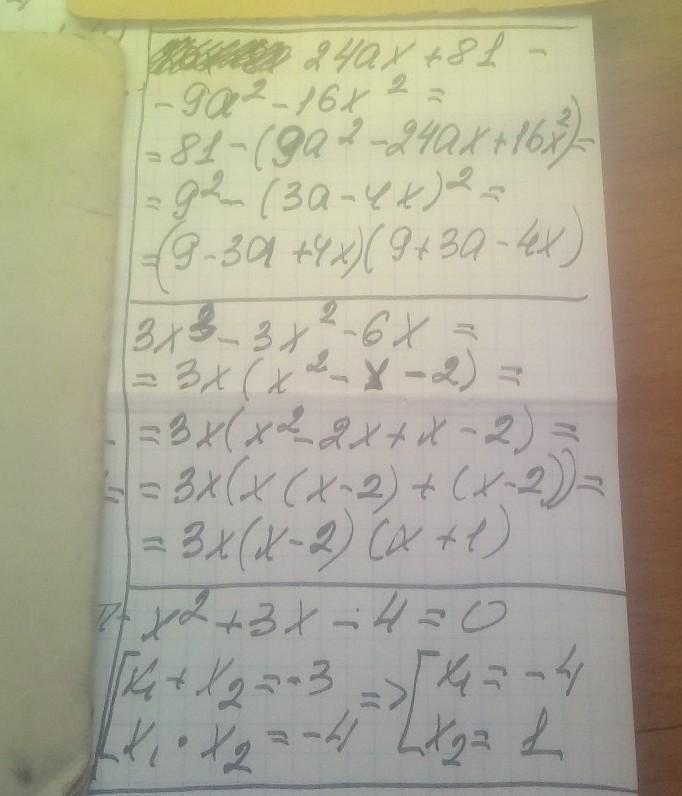 24ax + 81 -
- 9a² - 16x² =
= 81 - (9a² - 24ax + 16x²) =
= 9² - (3a - 4x)² =
= (9 - 3a + 4x)(9 + 3a - 4x)
3x³ - 3x² - 6x =
= 3x(x² - x - 2) =
= 3x(x² - 2x + x - 2) =
= 3x(x(x - 2) + (x - 2)) =
= 3x(x - 2)(x + 1)
x² + 3x - 4 = 0
[x₁ + x₂ = -3 => [x₁ = -4
x₁ · x₂ = -4 x₂ = 1